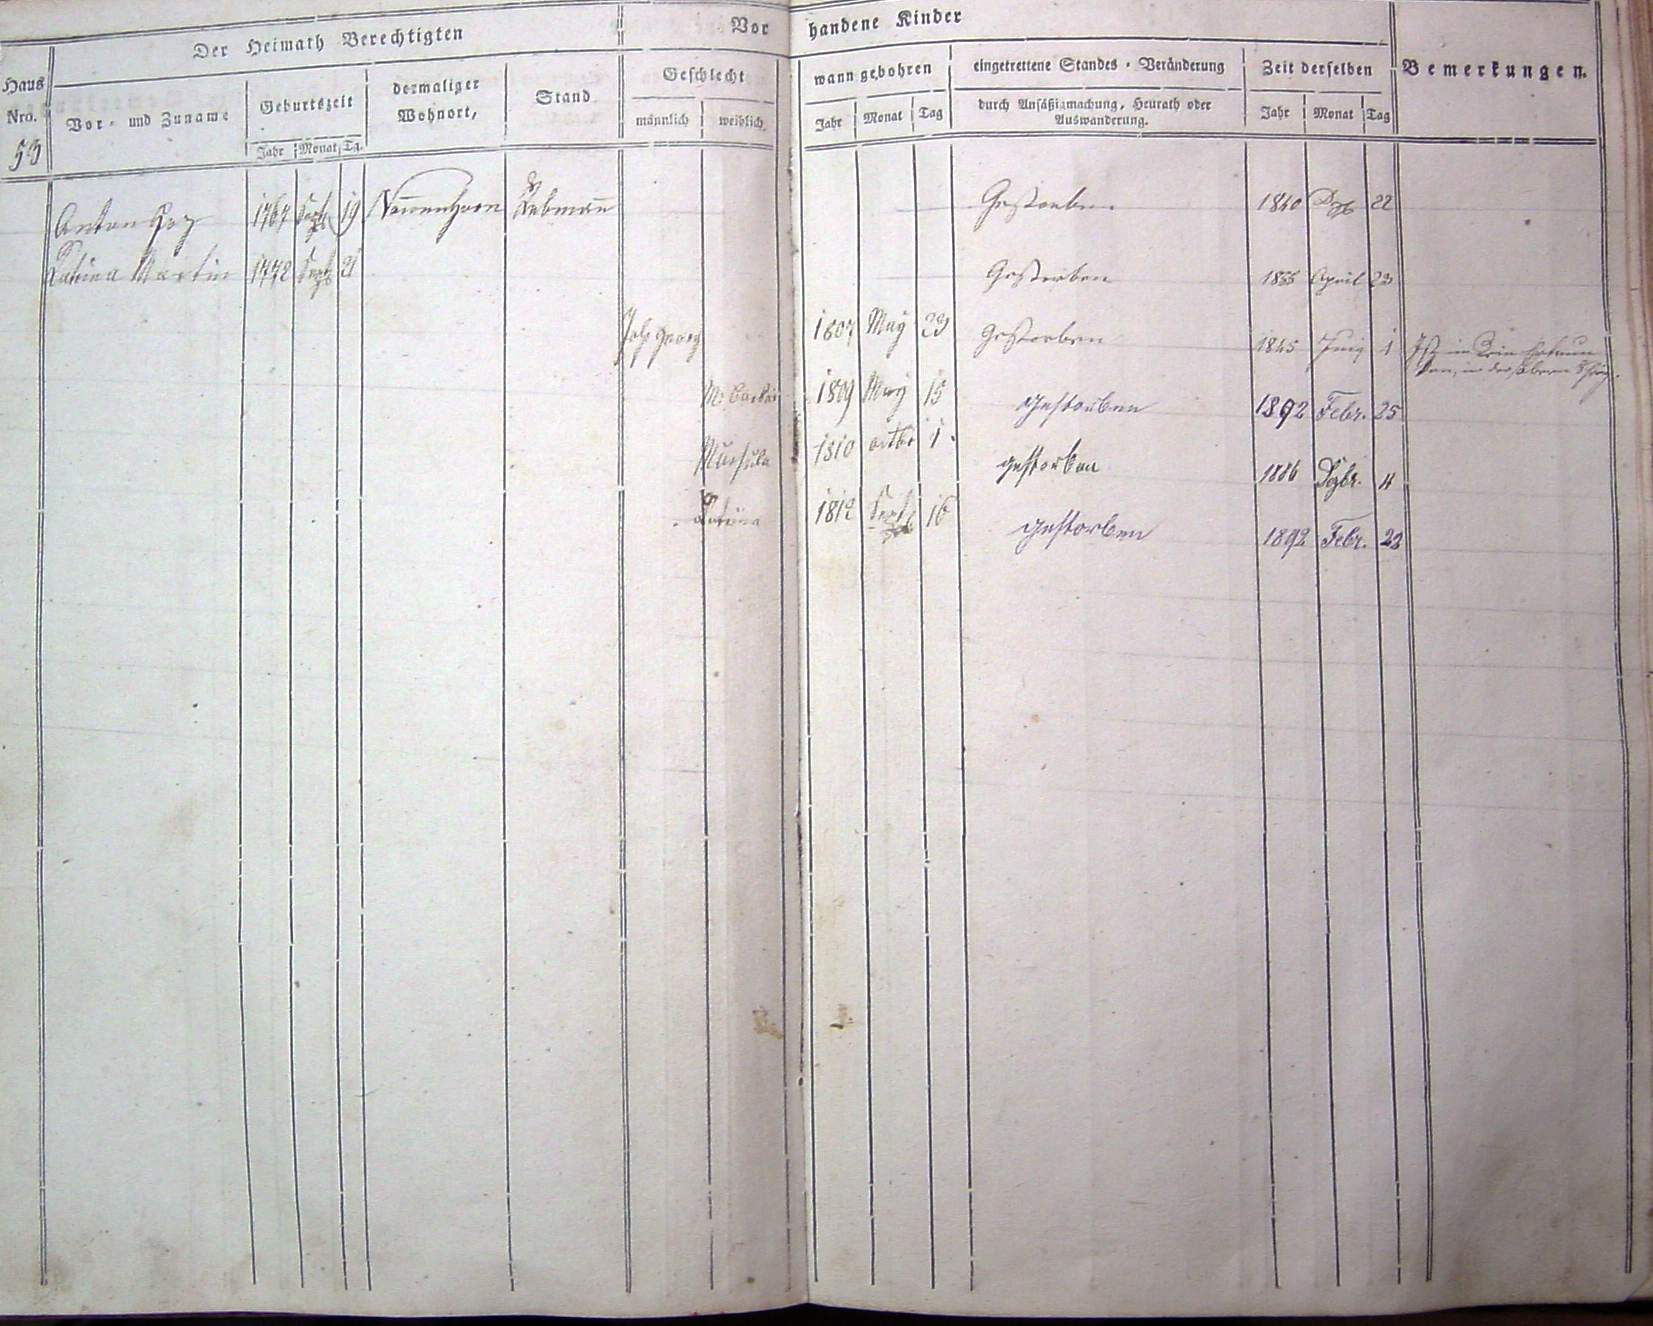 Der Heimath Berechtigten
Vorhandene Kinder
Haus Nro.
Vor- und Zuname
Geburtszeit
Jahr Monat Tg.
dermaliger Wohnort,
Stand
Geschlecht
männlich weiblich
wann gebohren
Jahr Monat Tag
eingetrettene Standes-Veränderung
durch Ansäßigmachung, Heurath oder Auswanderung.
Zeit derselben
Jahr Monat Tag
Bemerkungen.
53
Anton 1767 Sept 19 Nonnenhorn Rebmann Gestorben 1840 22
Martin 1772 Sept 21 Gestorben April 23
Georg 1807 May 23 Gestorben 1845 Juny 1
M. 1809 May 15 gestorben 1892 Febr. 25
1810 1. gestorben 1886 Dezbr. 4
1812 Sept 16 gestorben 1892 Febr. 23